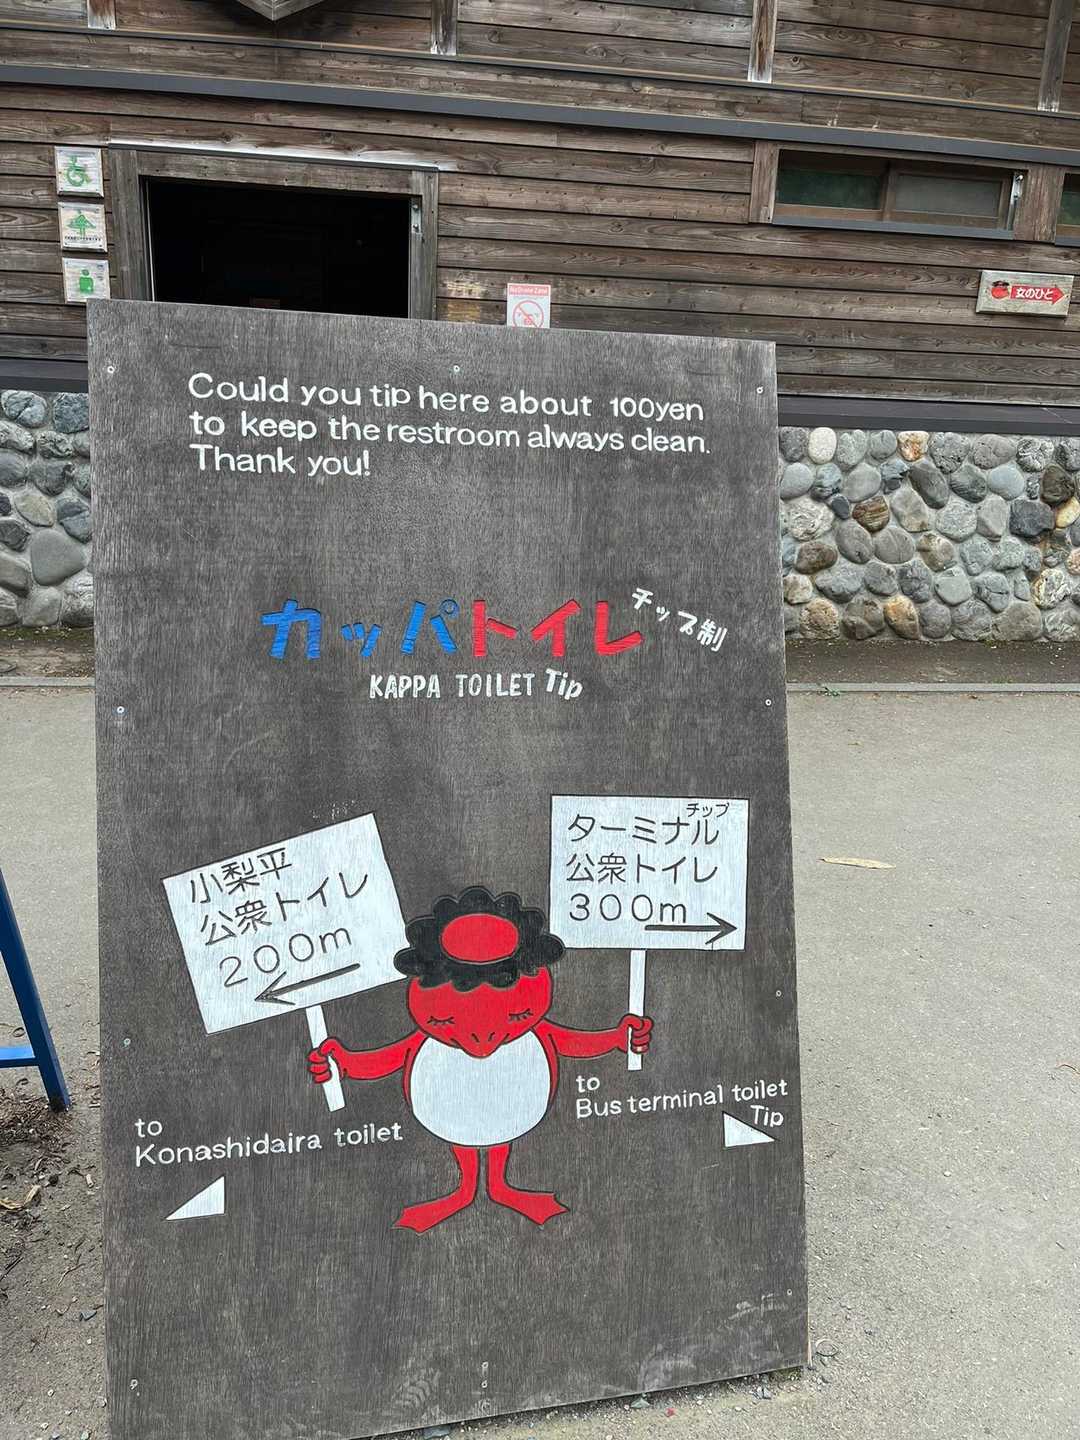 No Drone Zone
女のひと
Could you tip here about 100yen
to keep the restroom always clean.
Thank you!
カッパトイレ
チップ制
KAPPA TOILET Tip
小梨平
公衆トイレ
200m
チップ
ターミナル
公衆トイレ
300m
to
Konashidaira toilet
to
Bus terminal toilet
Tip